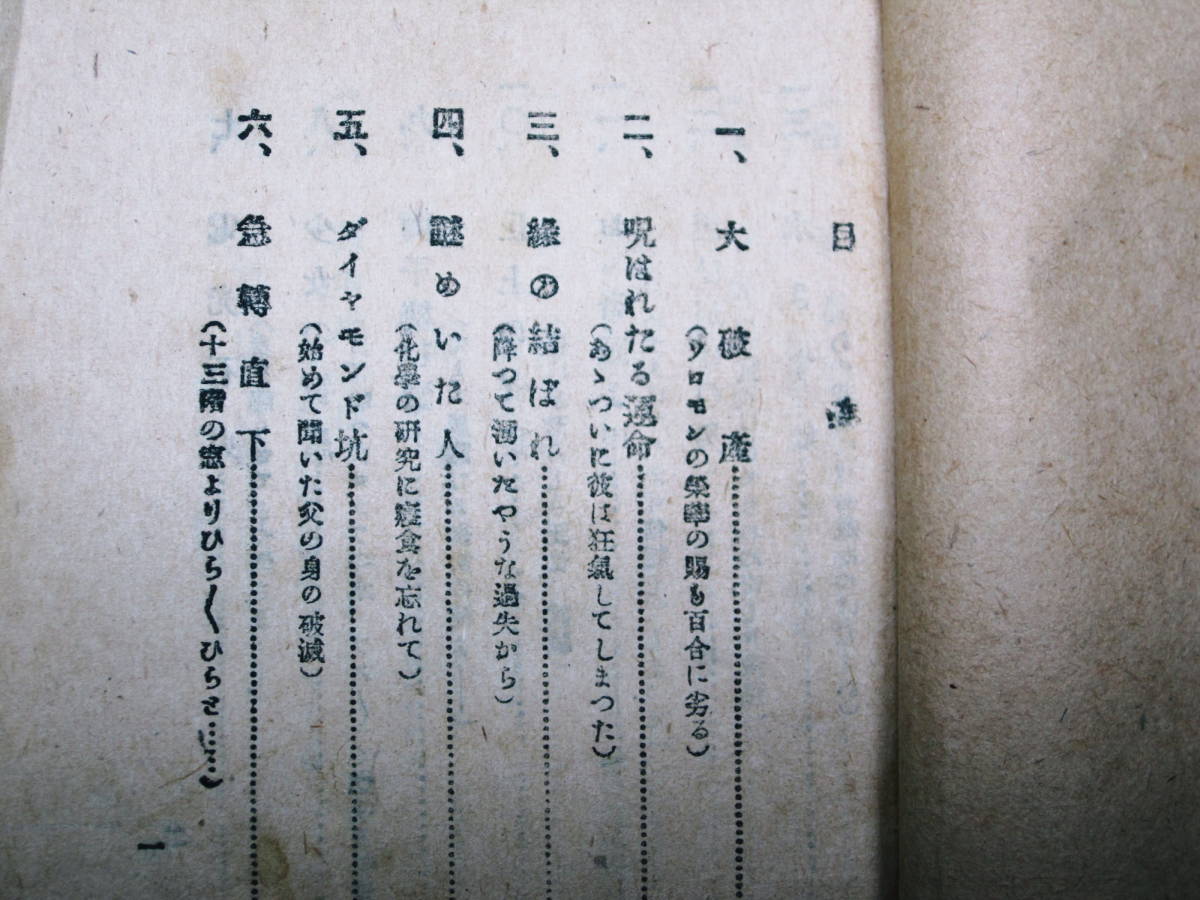 目次
一、大破産
(ソロモンの榮華の賜も百合に劣る)
二、呪はれたる運命
(あゝついに彼は狂氣してしまつた)
三、緣の結ばれ
(降つて湧いたやうな過失から)
四、謎めいた人
(化學の研究に寢食を忘れて)
五、ダイヤモンド坑
(始めて聞いた父の身の破滅)
六、急轉直下
(十三階の窓よりひら〱ひらと……)
一